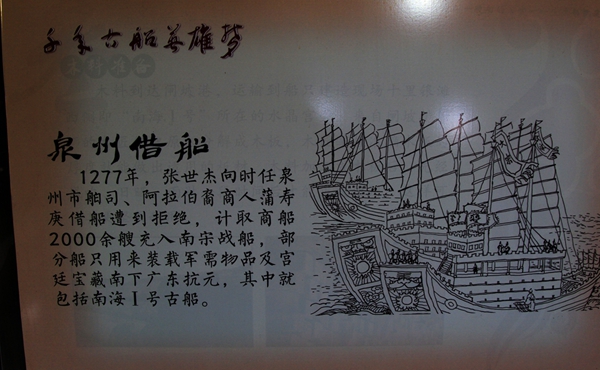 千年古船英雄梦
泉州借船
1277年，张世杰向时任泉
州市舶司、阿拉伯裔商人蒲寿
庚借船遭到拒绝，计取商船
2000余艘充入南宋战船，部
分船只用来装载军需物品及宫
廷宝藏南下广东抗元，其中就
包括南海Ⅰ号古船。